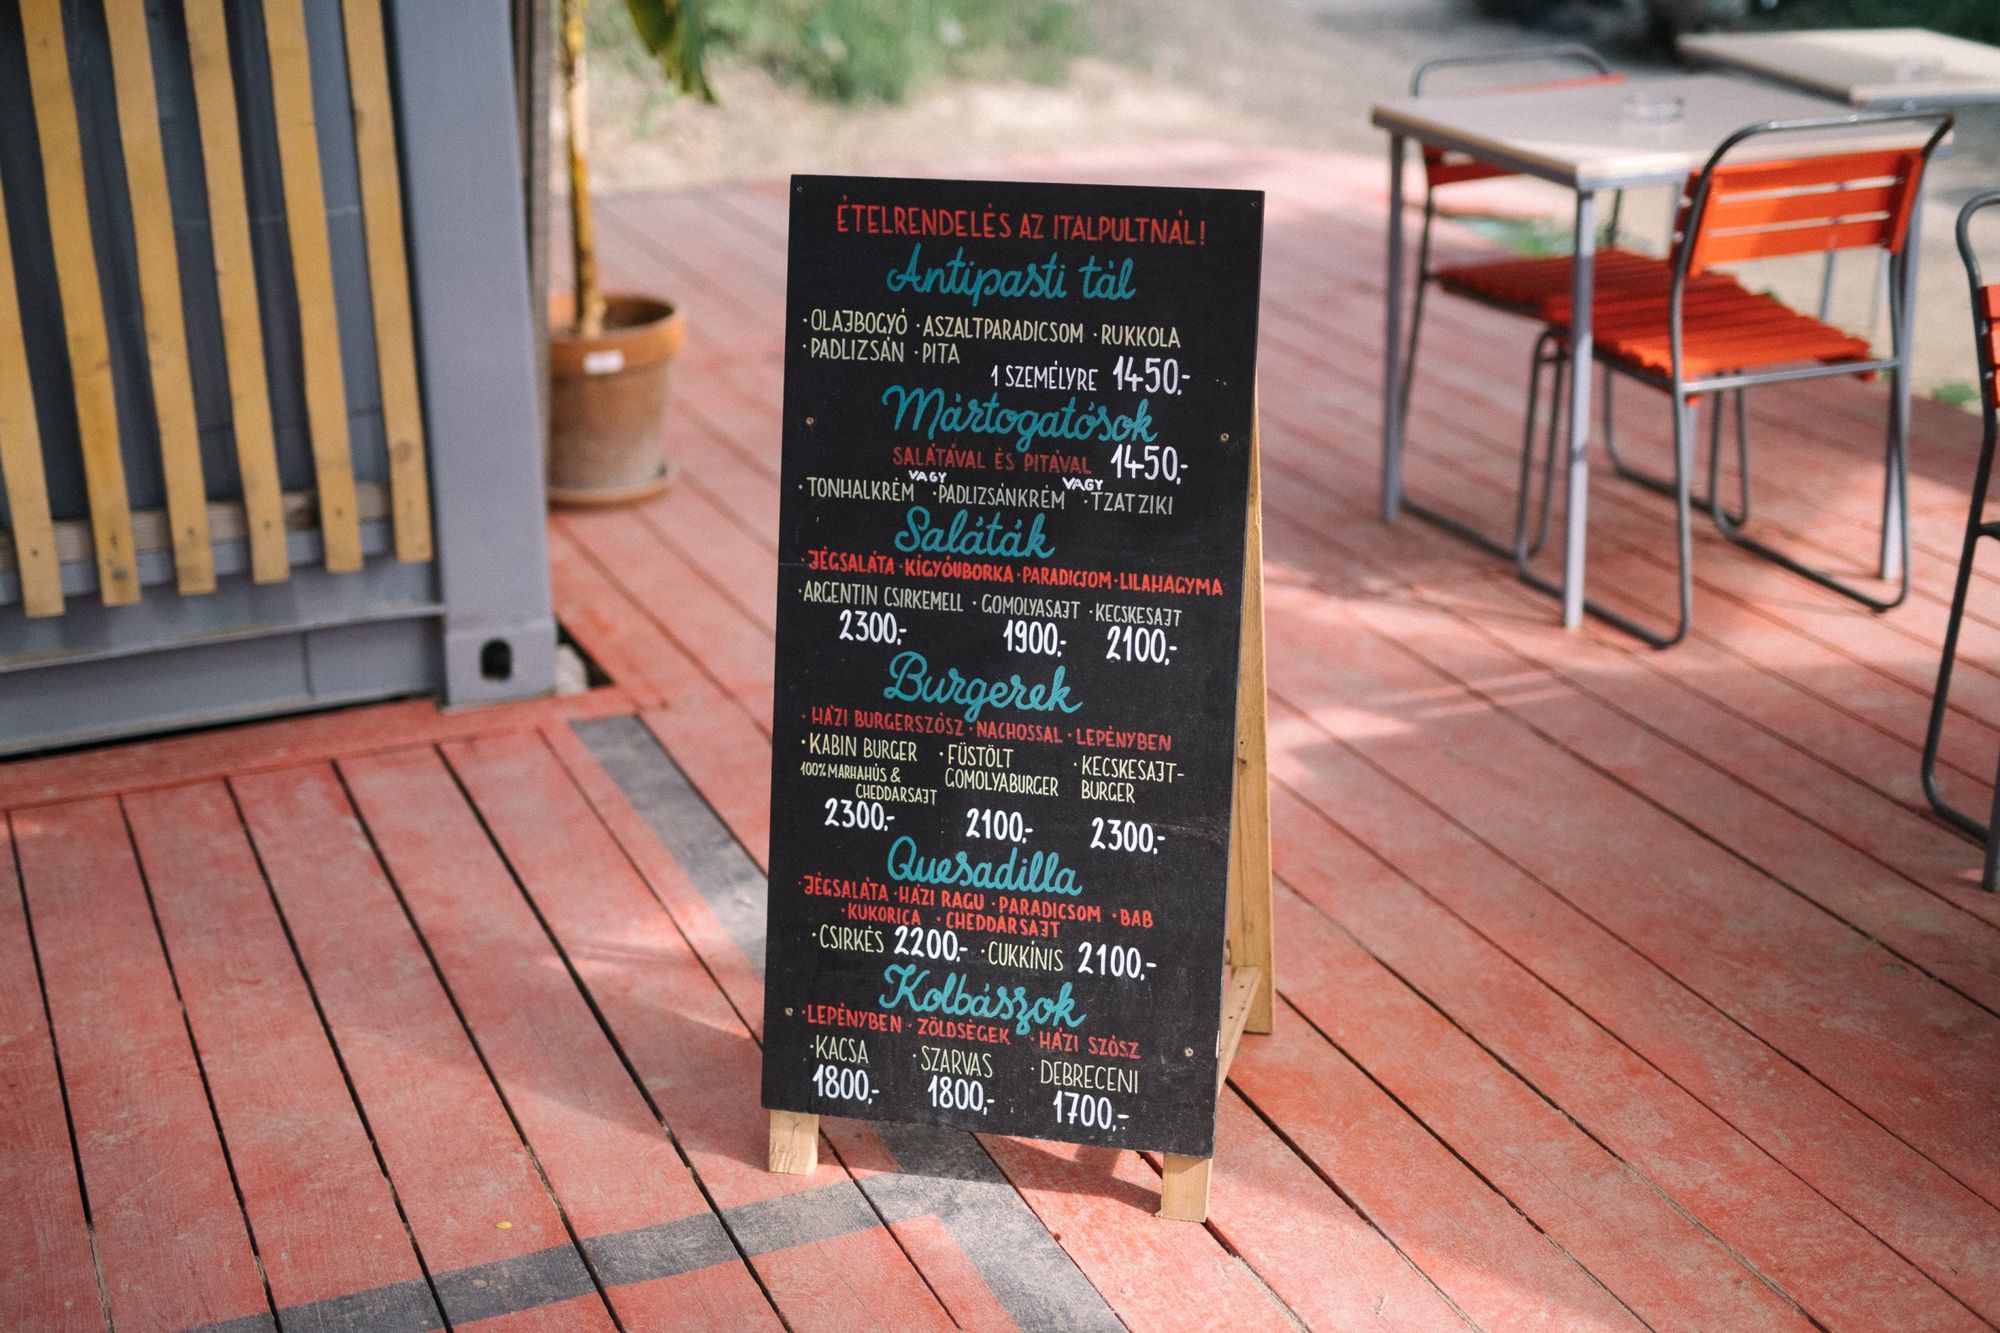 ÉTELRENDELÉS AZ ITALPULTNÁL!
Antipasti tál
·OLAJBOGYÓ ·ASZALTPARADICSOM ·RUKKOLA
·PADLIZSÁN ·PITA
1 SZEMÉLYRE 1450,-
Mártogatósok
SALÁTÁVAL ÉS PITÁVAL 1450,-
VAGY VAGY
·TONHALKRÉM ·PADLIZSÁNKRÉM ·TZATZIKI
Saláták
·JÉGSALÁTA ·KÍGYÓUBORKA ·PARADICSOM ·LILAHAGYMA
·ARGENTIN CSIRKEMELL ·GOMOLYASAJT ·KECSKESAJT
2300,- 1900,- 2100,-
Burgerek
·HÁZI BURGERSZÓSZ ·NACHOSSAL ·LEPÉNYBEN
·KABIN BURGER ·FÜSTÖLT ·KECSKESAJT-
100% MARHAHÚS & GOMOLYABURGER BURGER
CHEDDARSAJT
2300,- 2100,- 2300,-
Quesadilla
·JÉGSALÁTA ·HÁZI RAGU ·PARADICSOM ·BAB
·KUKORICA ·CHEDDARSAJT
·CSIRKÉS 2200,- ·CUKKÍNIS 2100,-
Kolbászok
·LEPÉNYBEN ·ZÖLDSÉGEK ·HÁZI SZÓSZ
·KACSA ·SZARVAS ·DEBRECENI
1800,- 1800,- 1700,-